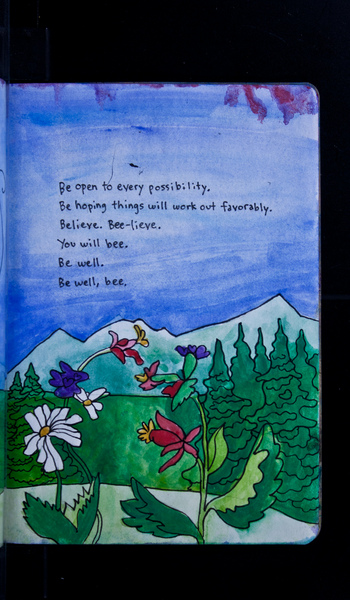 Be open to every possibility.
Be hoping things will work out favorably.
Believe. Bee-lieve.
You will bee.
Be well.
Be well, bee.